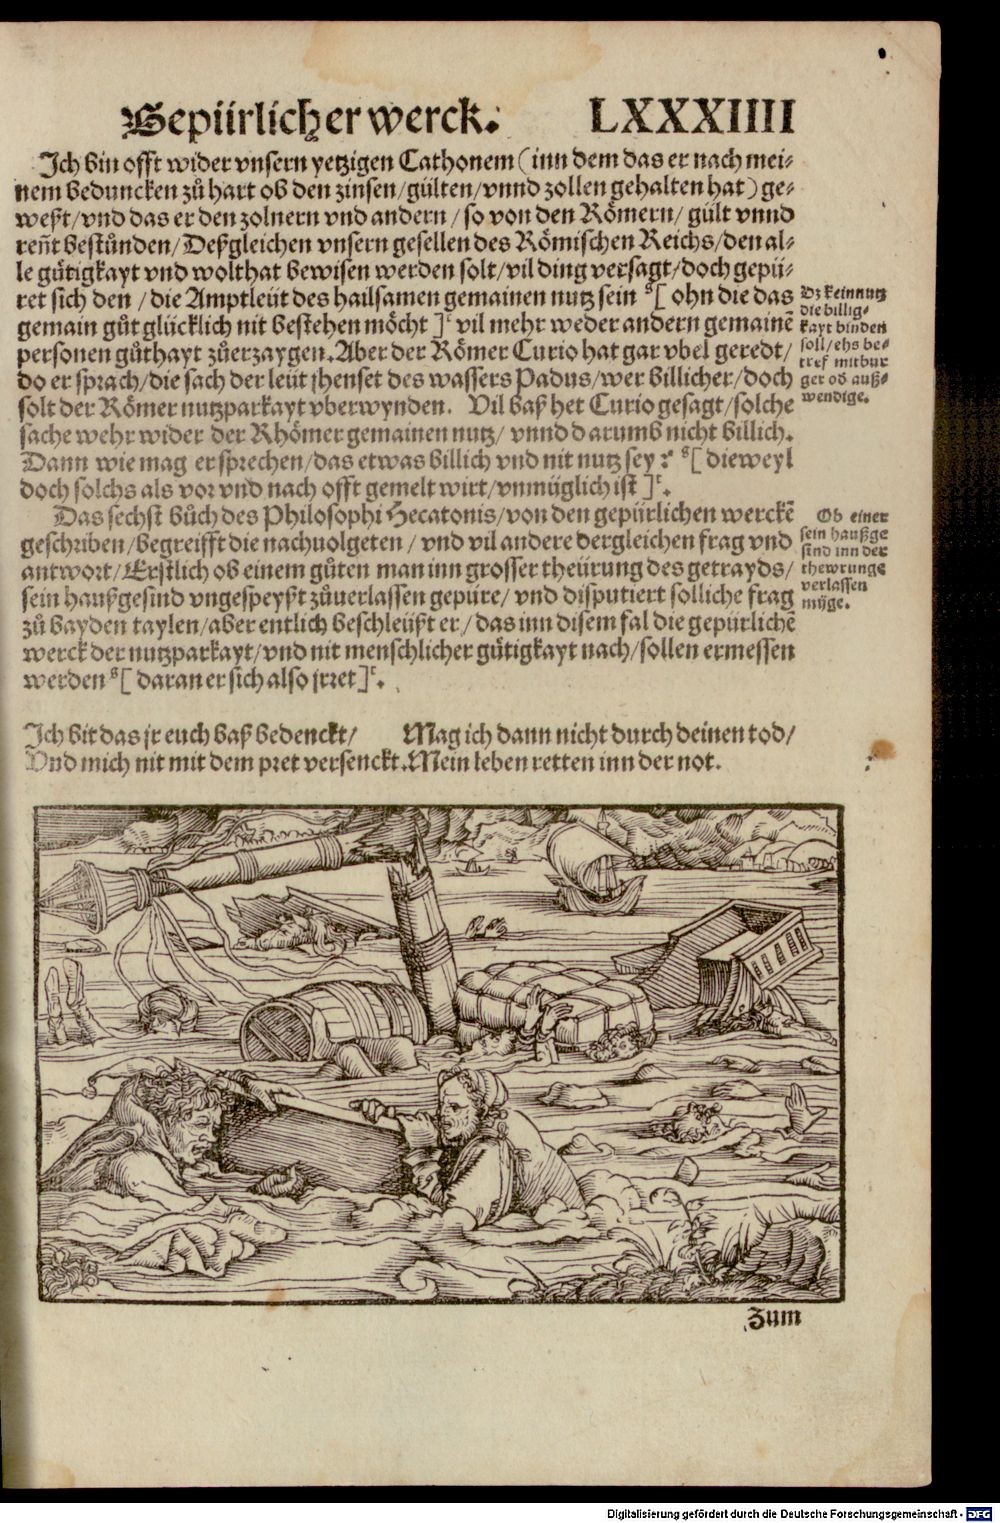 Gepürlicher werck. LXXXIIII
Ich bin offt wider vnsern yetzigen Cathonem (inn dem das er nach mei⸗
nem beduncken zů hart ob den zinsen/gülten/vnnd zollen gehalten hat) ge⸗
weßt/vnd das er den zolnern vnd andern/so von den Römern/gült vnnd
ren̄t bestůnden/Deßgleichen vnsern gesellen des Römischen Reichs/den al⸗
le gůtigkayt vnd wolthat bewisen werden solt/vil ding versagt/doch gepü⸗
ret sich den/die Amptleüt des hailsamen gemainen nutz sein ˢ[ ohn die das
gemain gůt glücklich nit bestehen möcht ]ᶜ vil mehr weder andern gemainē
personen gůthayt zůerzaygen. Aber der Römer Curio hat gar vbel geredt/
do er sprach/die sach der leüt jhenset des wassers Padus/wer billicher/doch
solt der Römer nutzparkayt vberwynden. Vil baß het Curio gesagt/solche
sache wehr wider der Rhömer gemainen nutz/vnnd darumb nicht billich.
Dann wie mag er sprechen/das etwas billich vnd nit nutz sey? ˢ[ dieweyl
doch solchs als vor vnd nach offt gemelt wirt/vnmüglich ist ]ᶜ.
Dz kein nutz
die billig⸗
kayt binden
soll/ehs be⸗
tref mitbur
ger od auß⸗
wendige.
Das sechst bůch des Philosophi Hecatonis/von den gepürlichen werckē
geschriben/begreifft die nachuolgeten/vnd vil andere dergleichen frag vnd
antwort/Erstlich ob einem gůten man inn grosser theürung des getrayds/
sein haußgesind vngespeyßt zůuerlassen gepüre/vnd disputiert solliche frag
zů bayden taylen/aber entlich beschleüßt er/das inn disem fal die gepürlichē
werck der nutzparkayt/vnd nit menschlicher gütigkayt nach/sollen ermessen
werden ˢ[ daran er sich also jrret ]ᶜ.
Ob einer
sein haußge
sind inn der
thewrunge
verlassen
müge.
Ich bit das jr euch baß bedenckt/
Vnd mich nit mit dem pret versenckt.
Mag ich dann nicht durch deinen tod/
Mein leben retten inn der not.
Zum
Digitalisierung gefördert durch die Deutsche Forschungsgemeinschaft - DFG